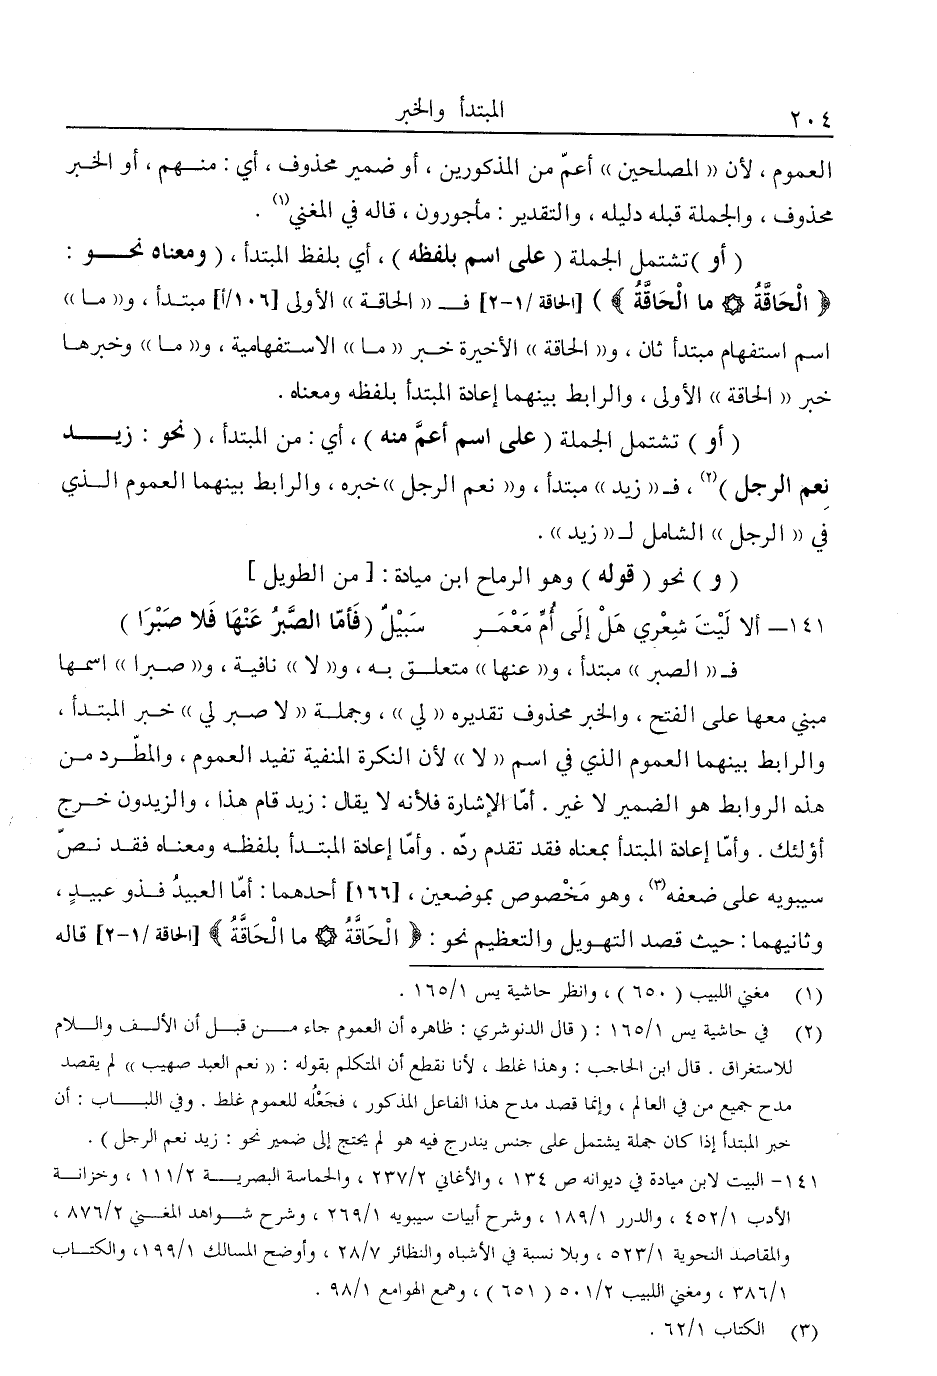 ٢٠٤ المبتدأ والخبر
العموم ، لأن « المصلحين » أعمّ من المذكورين ، أو ضمير محذوف ، أي : منهم ، أو الخبر
محذوف ، والجملة قبله دليله ، والتقدير : مأجورون ، قاله في المغني(١) .
( أو )تشتمل الجملة ( على اسم بلفظه ) ، أي بلفظ المبتدأ ، ( ومعناه نحو :
﴿ الْحَاقَّةُ ۞ ما الْحَاقَّةُ ﴾ ) [الحاقة /١-٢] فـ « الحاقة » الأولى [١٠٦/أ] مبتدأ ، و« ما »
اسم استفهام مبتدأ ثان ، و« الحاقة » الأخيرة خبر « ما » الاستفهامية ، و« ما » وخبرها
خبر « الحاقة » الأولى ، والرابط بينهما إعادة المبتدأ بلفظه ومعناه .
( أو ) تشتمل الجملة ( على اسم أعمَّ منه ) ، أي : من المبتدأ ، ( نحو : زيد
نعم الرجل )(٢) ، فـ« زيد » مبتدأ ، و« نعم الرجل »خبره ، والرابط بينهما العموم الذي
في « الرجل » الشامل لـ« زيد » .
( و ) نحو ( قوله ) وهو الرماح ابن ميادة : [ من الطويل ]
١٤١– ألا لَيْتَ شِعْرِي هَلْ إلَى أُمِّ مَعْمَرٍ سَبِيْلٌ ( فَأمّا الصَّبْرُ عَنْهَا فَلا صَبْرَا )
فـ« الصبر » مبتدأ ، و« عنها » متعلق به ، و« لا » نافية ، و« صبرا » اسمها
مبني معها على الفتح ، والخبر محذوف تقديره « لي » ، وجملة « لا صبر لي » خبر المبتدأ ،
والرابط بينهما العموم الذي في اسم « لا » لأن النكرة المنفية تفيد العموم ، والمطّرد من
هذه الروابط هو الضمير لا غير . أمّا الإشارة فلأنه لا يقال : زيد قام هذا ، والزيدون خرج
أؤلئك . وأمّا إعادة المبتدأ بمعناه فقد تقدم ردّه . وأمّا إعادة المبتدأ بلفظه ومعناه فقد نصّ
سيبويه على ضعفه(٣) ، وهو مَخْصوص بموضعين ، [١٦٦] أحدهما : أمّا العبيدُ فذو عبيدٍ ،
وثانيهما : حيث قصد التهويل والتعظيم نحو : ﴿ الْحَاقَّةُ ۞ ما الْحَاقَّةُ ﴾ [الحاقة /١-٢] قاله
(١) مغني اللبيب ( ٦٥٠ ) ، وانظر حاشية يس ١٦٥/١ .
(٢) في حاشية يس ١٦٥/١ : ( قال الدنوشري : ظاهره أن العموم جاء من قبل أن الألف واللام
للاستغراق . قال ابن الحاجب : وهذا غلط ، لأنا نقطع أن المتكلم بقوله : « نعم العبد صهيب » لم يقصد
مدح جميع من في العالم ، وإنما قصد مدح هذا الفاعل المذكور ، فجَعْلُه للعموم غلط . وفي اللباب : أن
خبر المبتدأ إذا كان جملة يشتمل على جنس يندرج فيه هو لم يحتج إلى ضمير نحو : زيد نعم الرجل ) .
١٤١- البيت لابن ميادة في ديوانه ص ١٣٤ ، والأغاني ٢٣٧/٢ ، والحماسة البصرية ١١١/٢ ، وخزانة
الأدب ٤٥٢/١ ، والدرر ١٨٩/١ ، وشرح أبيات سيبويه ٢٦٩/١ ، وشرح شواهد المغني ٨٧٦/٢ ،
والمقاصد النحوية ٥٢٣/١ ، وبلا نسبة في الأشباه والنظائر ٢٨/٧ ، وأوضح المسالك ١٩٩/١، والكتاب
٣٨٦/١ ، ومغني اللبيب ٥٠١/٢ ( ٦٥١ ) ، وهمع الهوامع ٩٨/١ .
(٣) الكتاب ٦٢/١ .